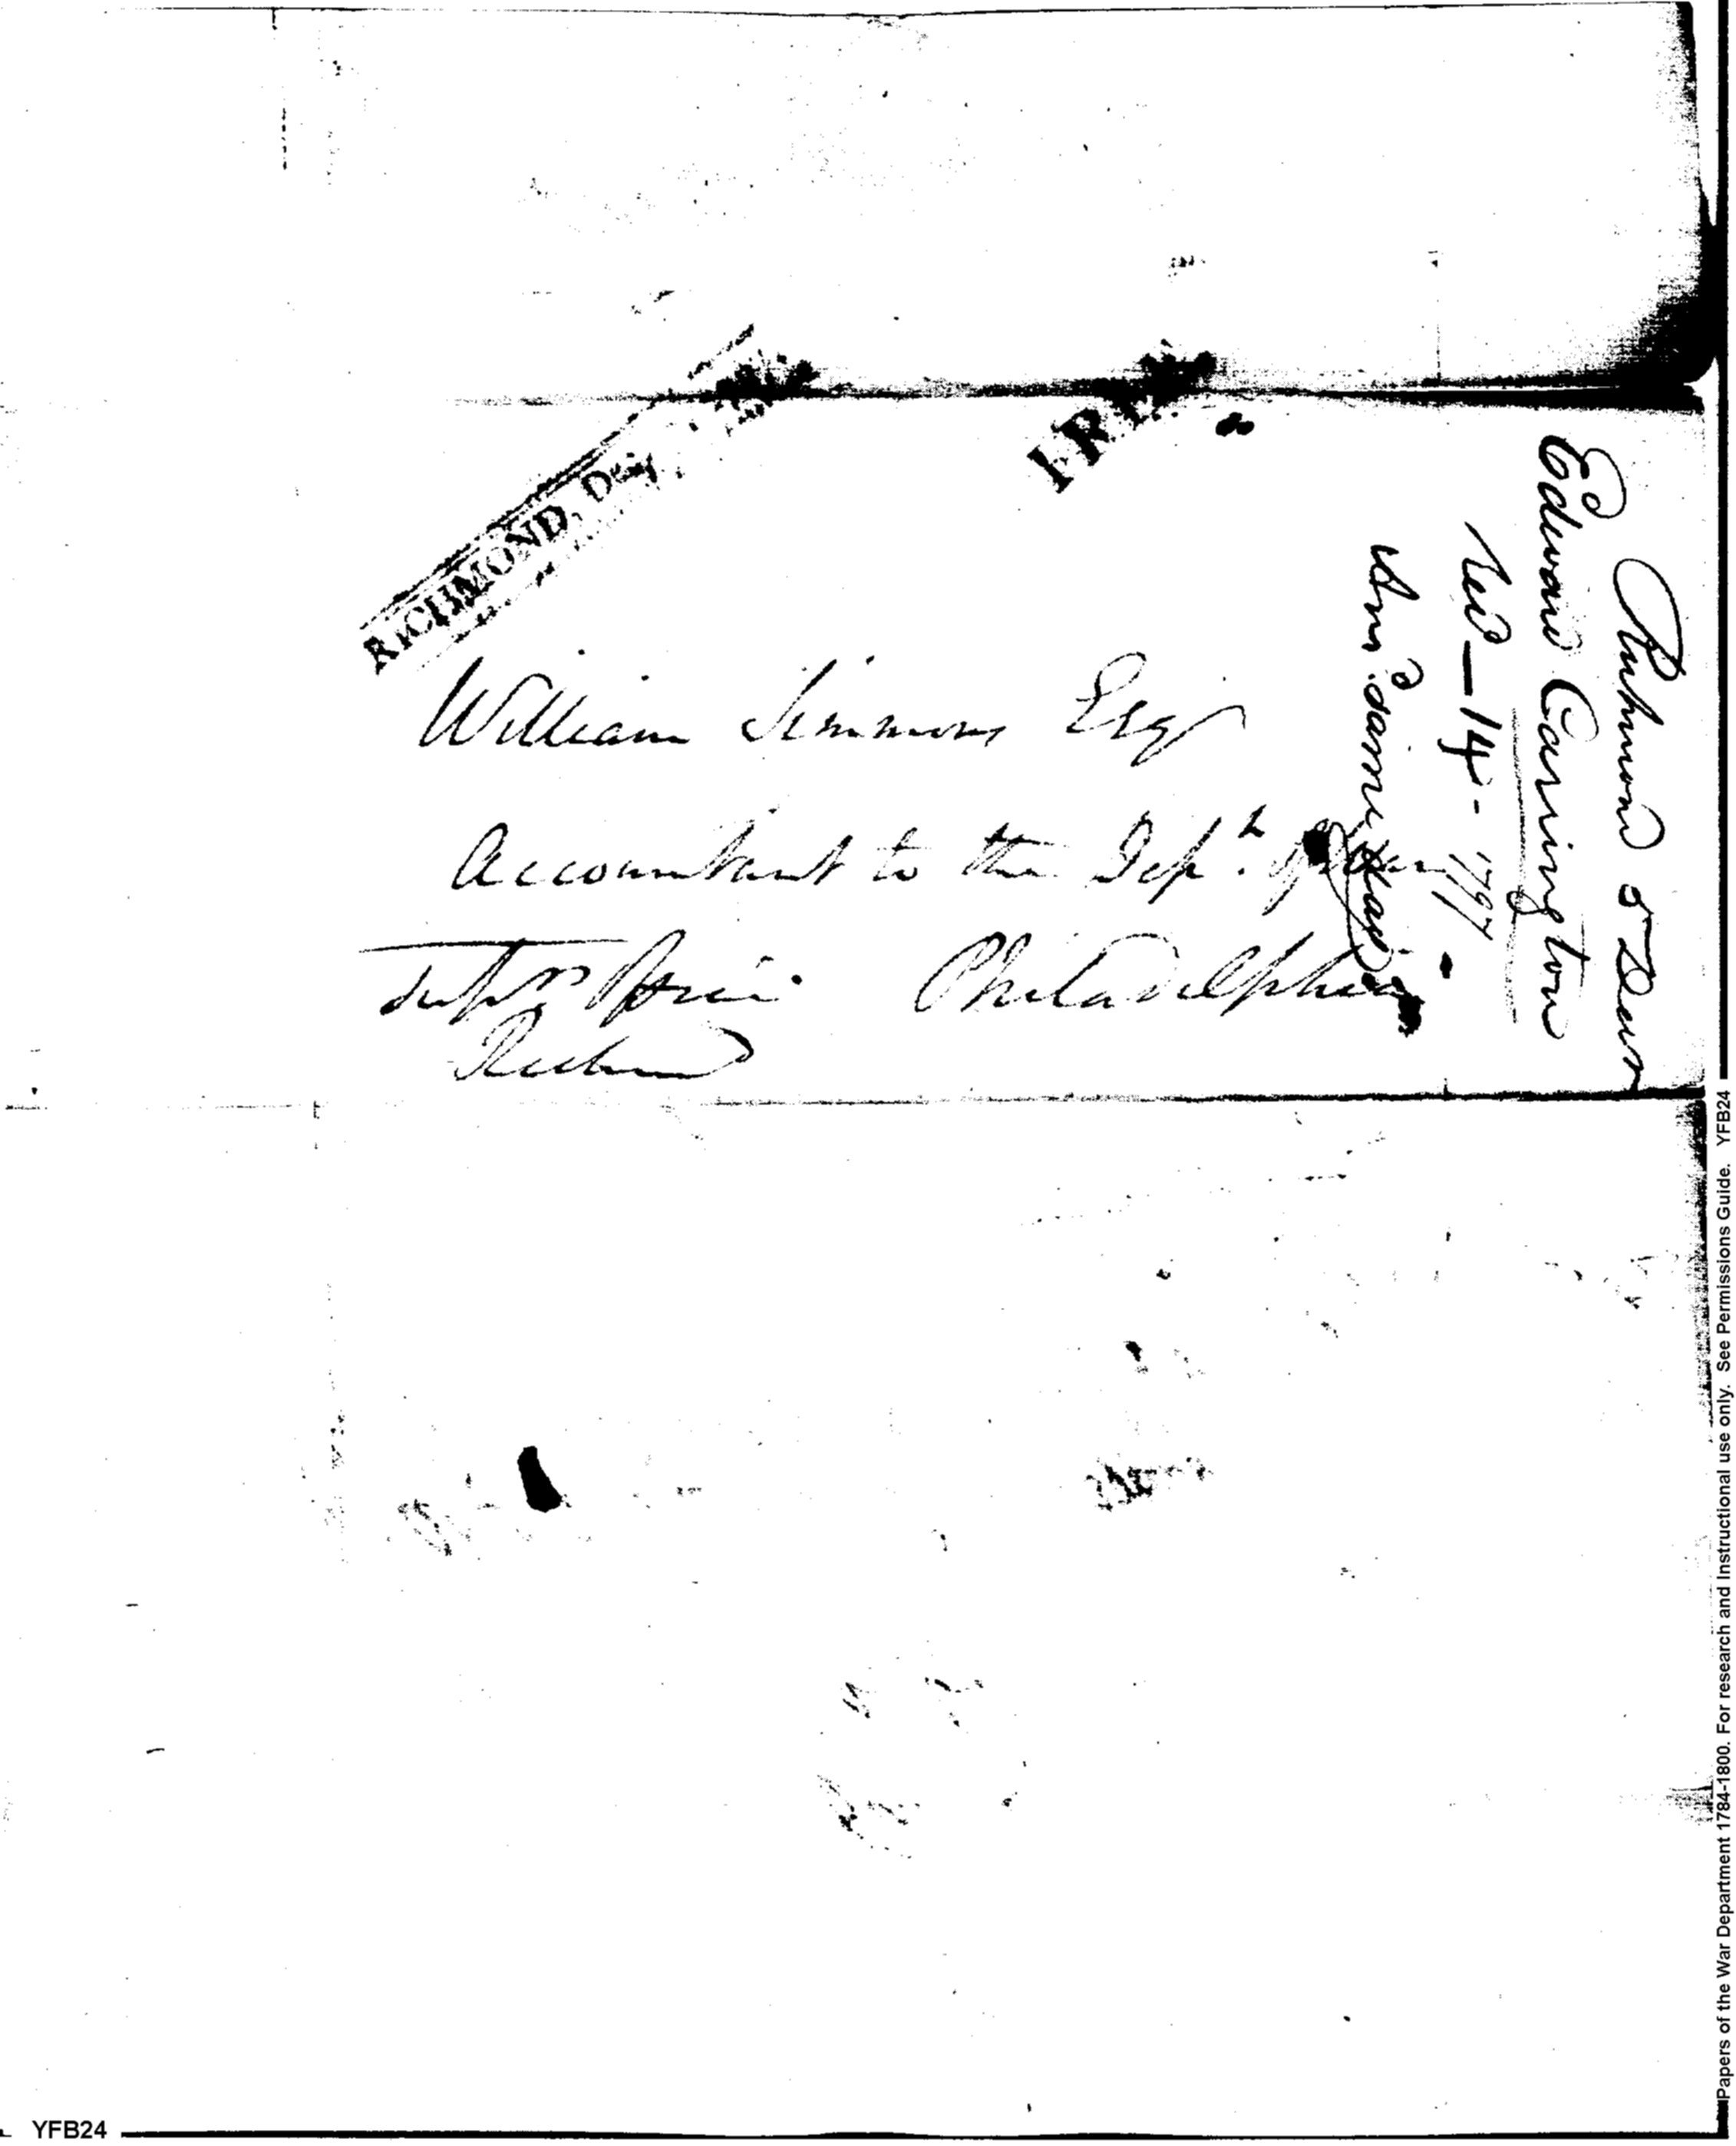 RICHMOND, Dec
FRE
William Simmons Esqr
Accountant to the Dept. of War
Philadelphia
Supr Office
Richmond
Richmond 5 Decr
Edward Carrington
Recd - 14 - 1797
Ansd same day
Papers of the War Department 1784-1800. For research and Instructional use only. See Permissions Guide. YFB24
YFB24